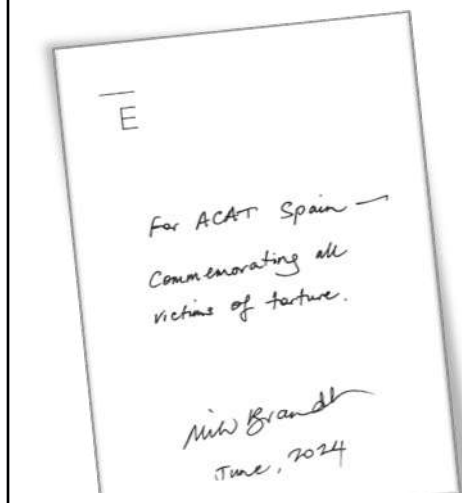 E
For ACAT Spain —
Commemorating all
victims of torture.
Brandt
June, 2024